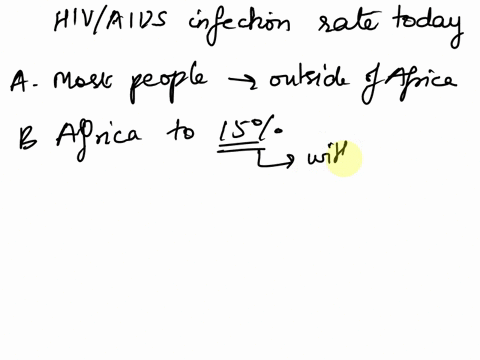 HIV/AIDS infection rate today
A. Most people → outside of Africa
B Africa to 15%.
↳ with